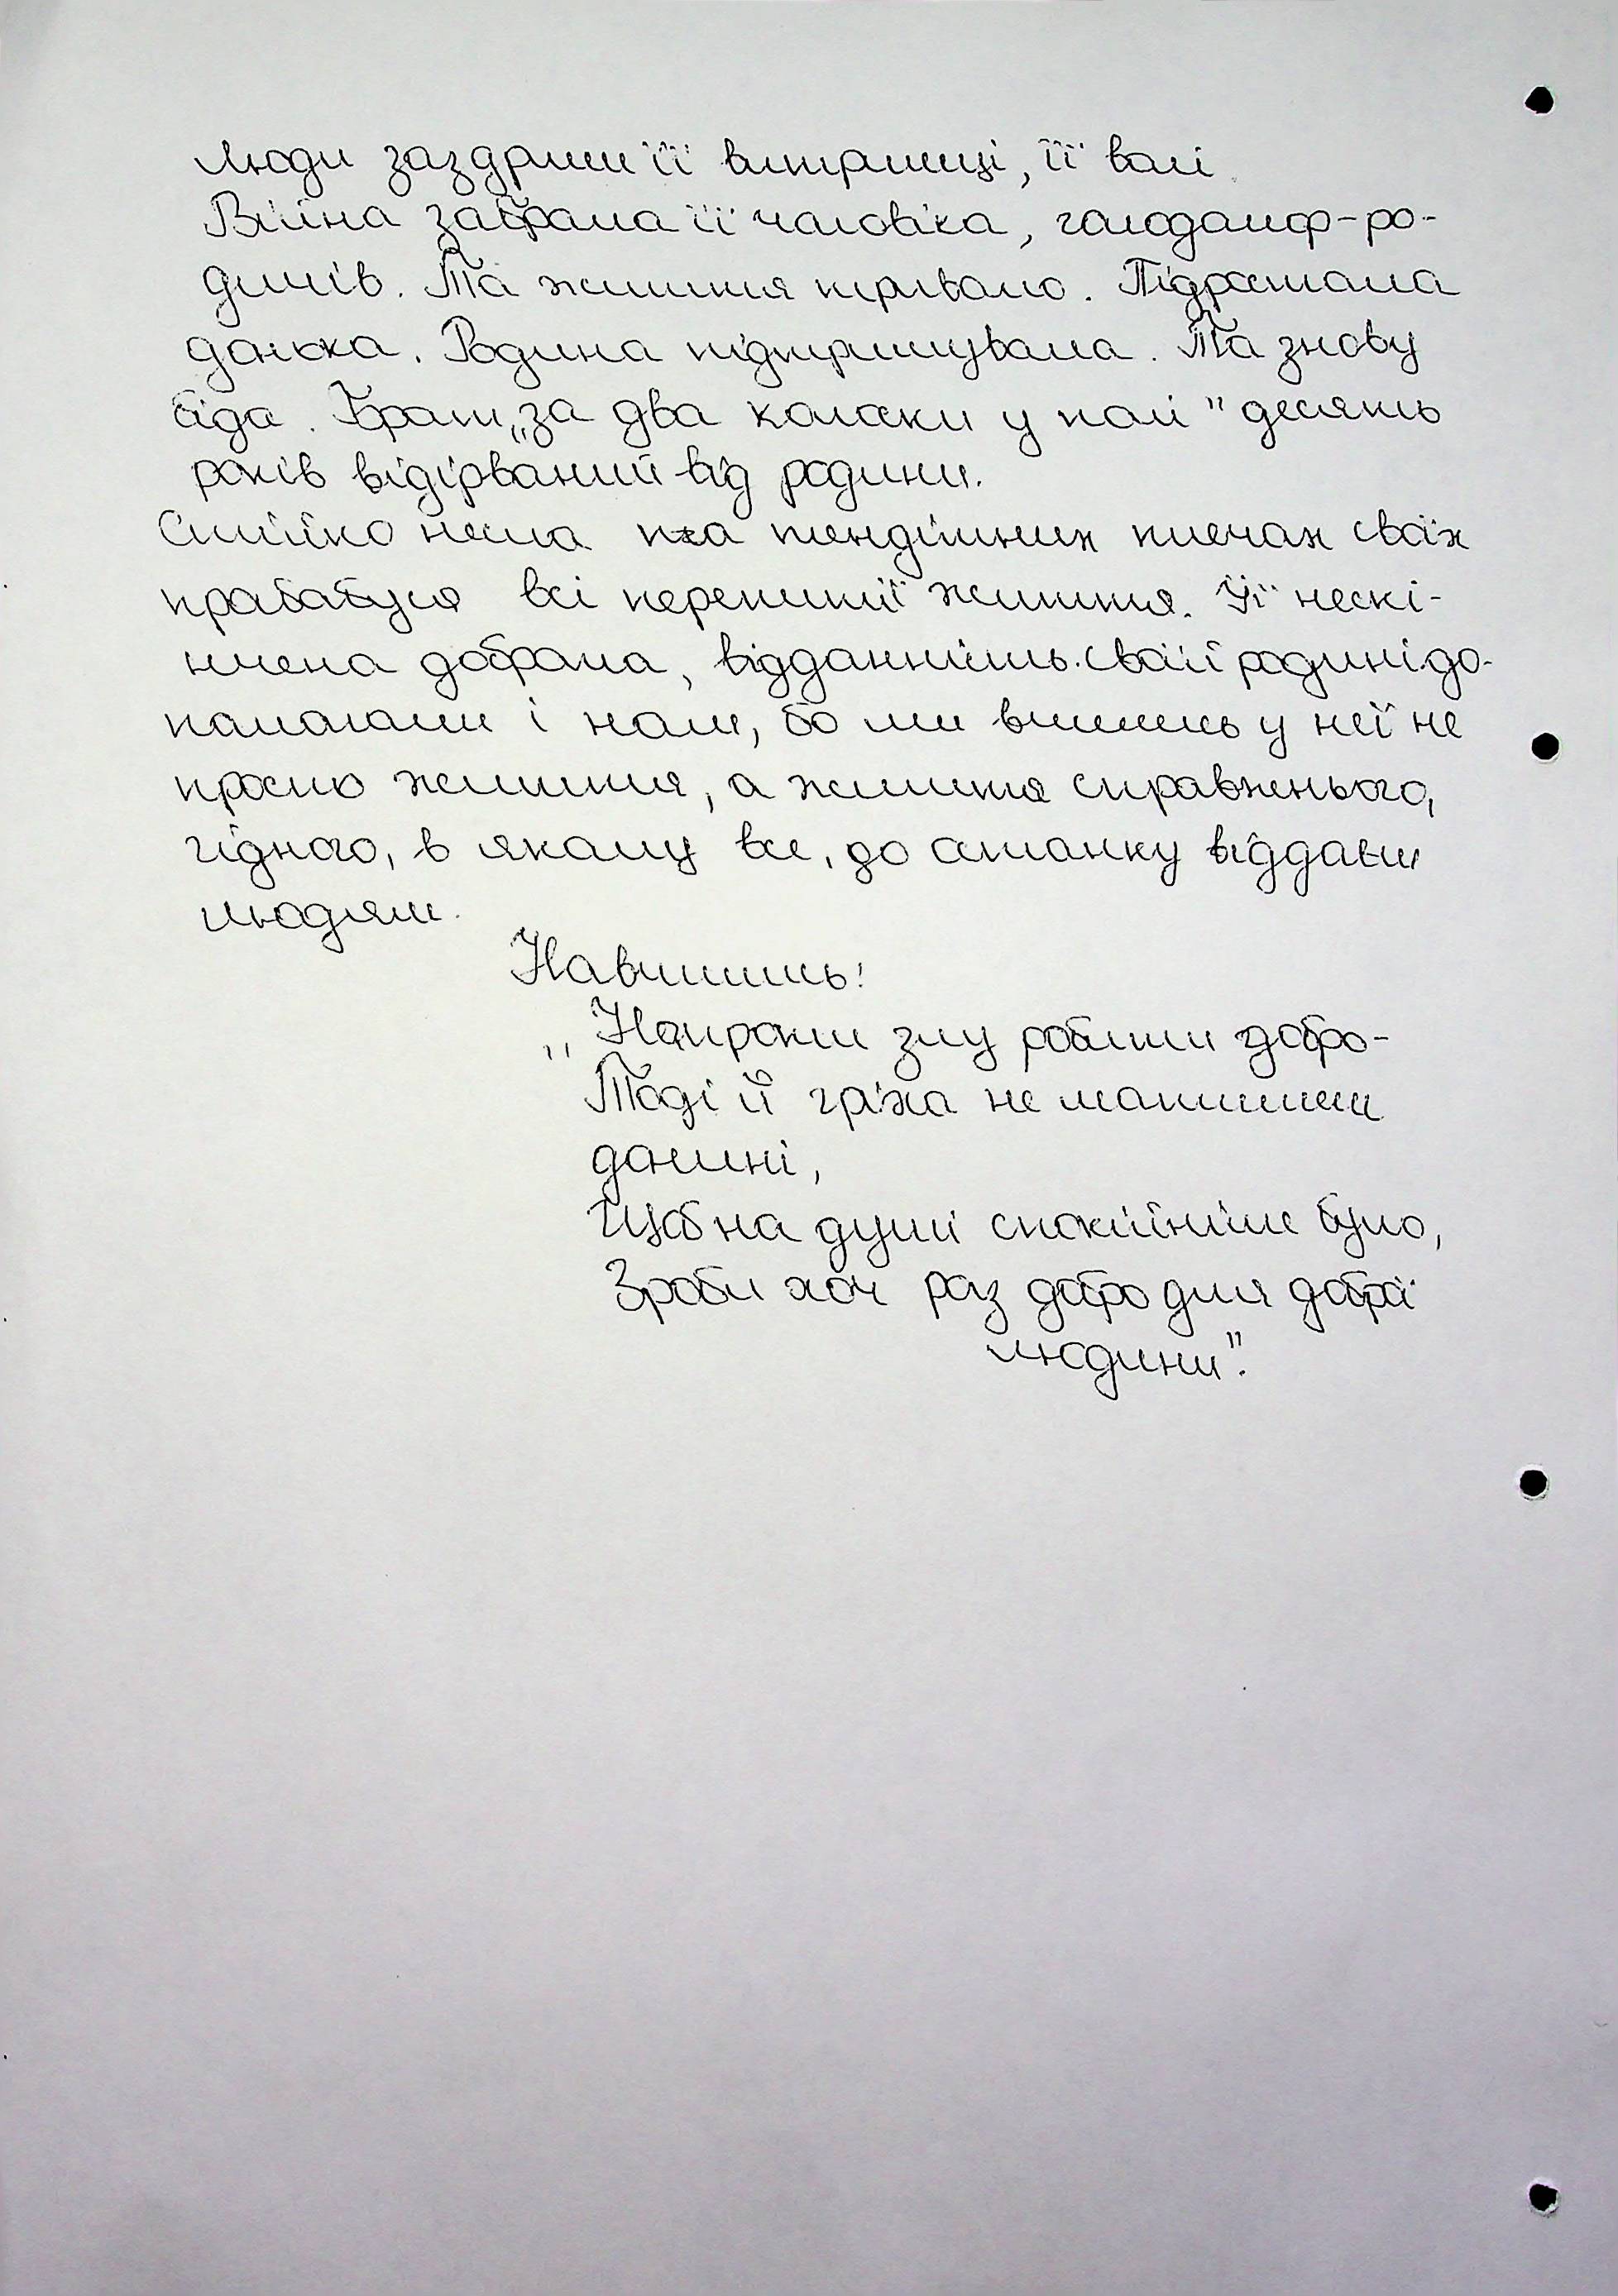 Люди заздрили її витримці, її волі.
Війна забрала її чоловіка, голодомор-ро-
дичів. Та життя тривало. Підростала
донька. Родина підтримувала. Та знову
біда. Брат „за два колоски у полі" десять
років відірваний від родини.
Стійко несла на тендітних плечах своїх
прабабуся всі перепитії життя. Її нескі-
нчена доброта, відданність своїй родині до-
помагали і нам, бо ми вчились у неї не
просто життя, а життя справжнього,
гідного, в якому все, до останку віддавш
людям.
Навчитись!
„Наироки злу робити добро-
Тоді й гріха не матимеш
донині,
Щоб на душі спокійніше було,
Зроби хоч раз добро для доброї
людини".